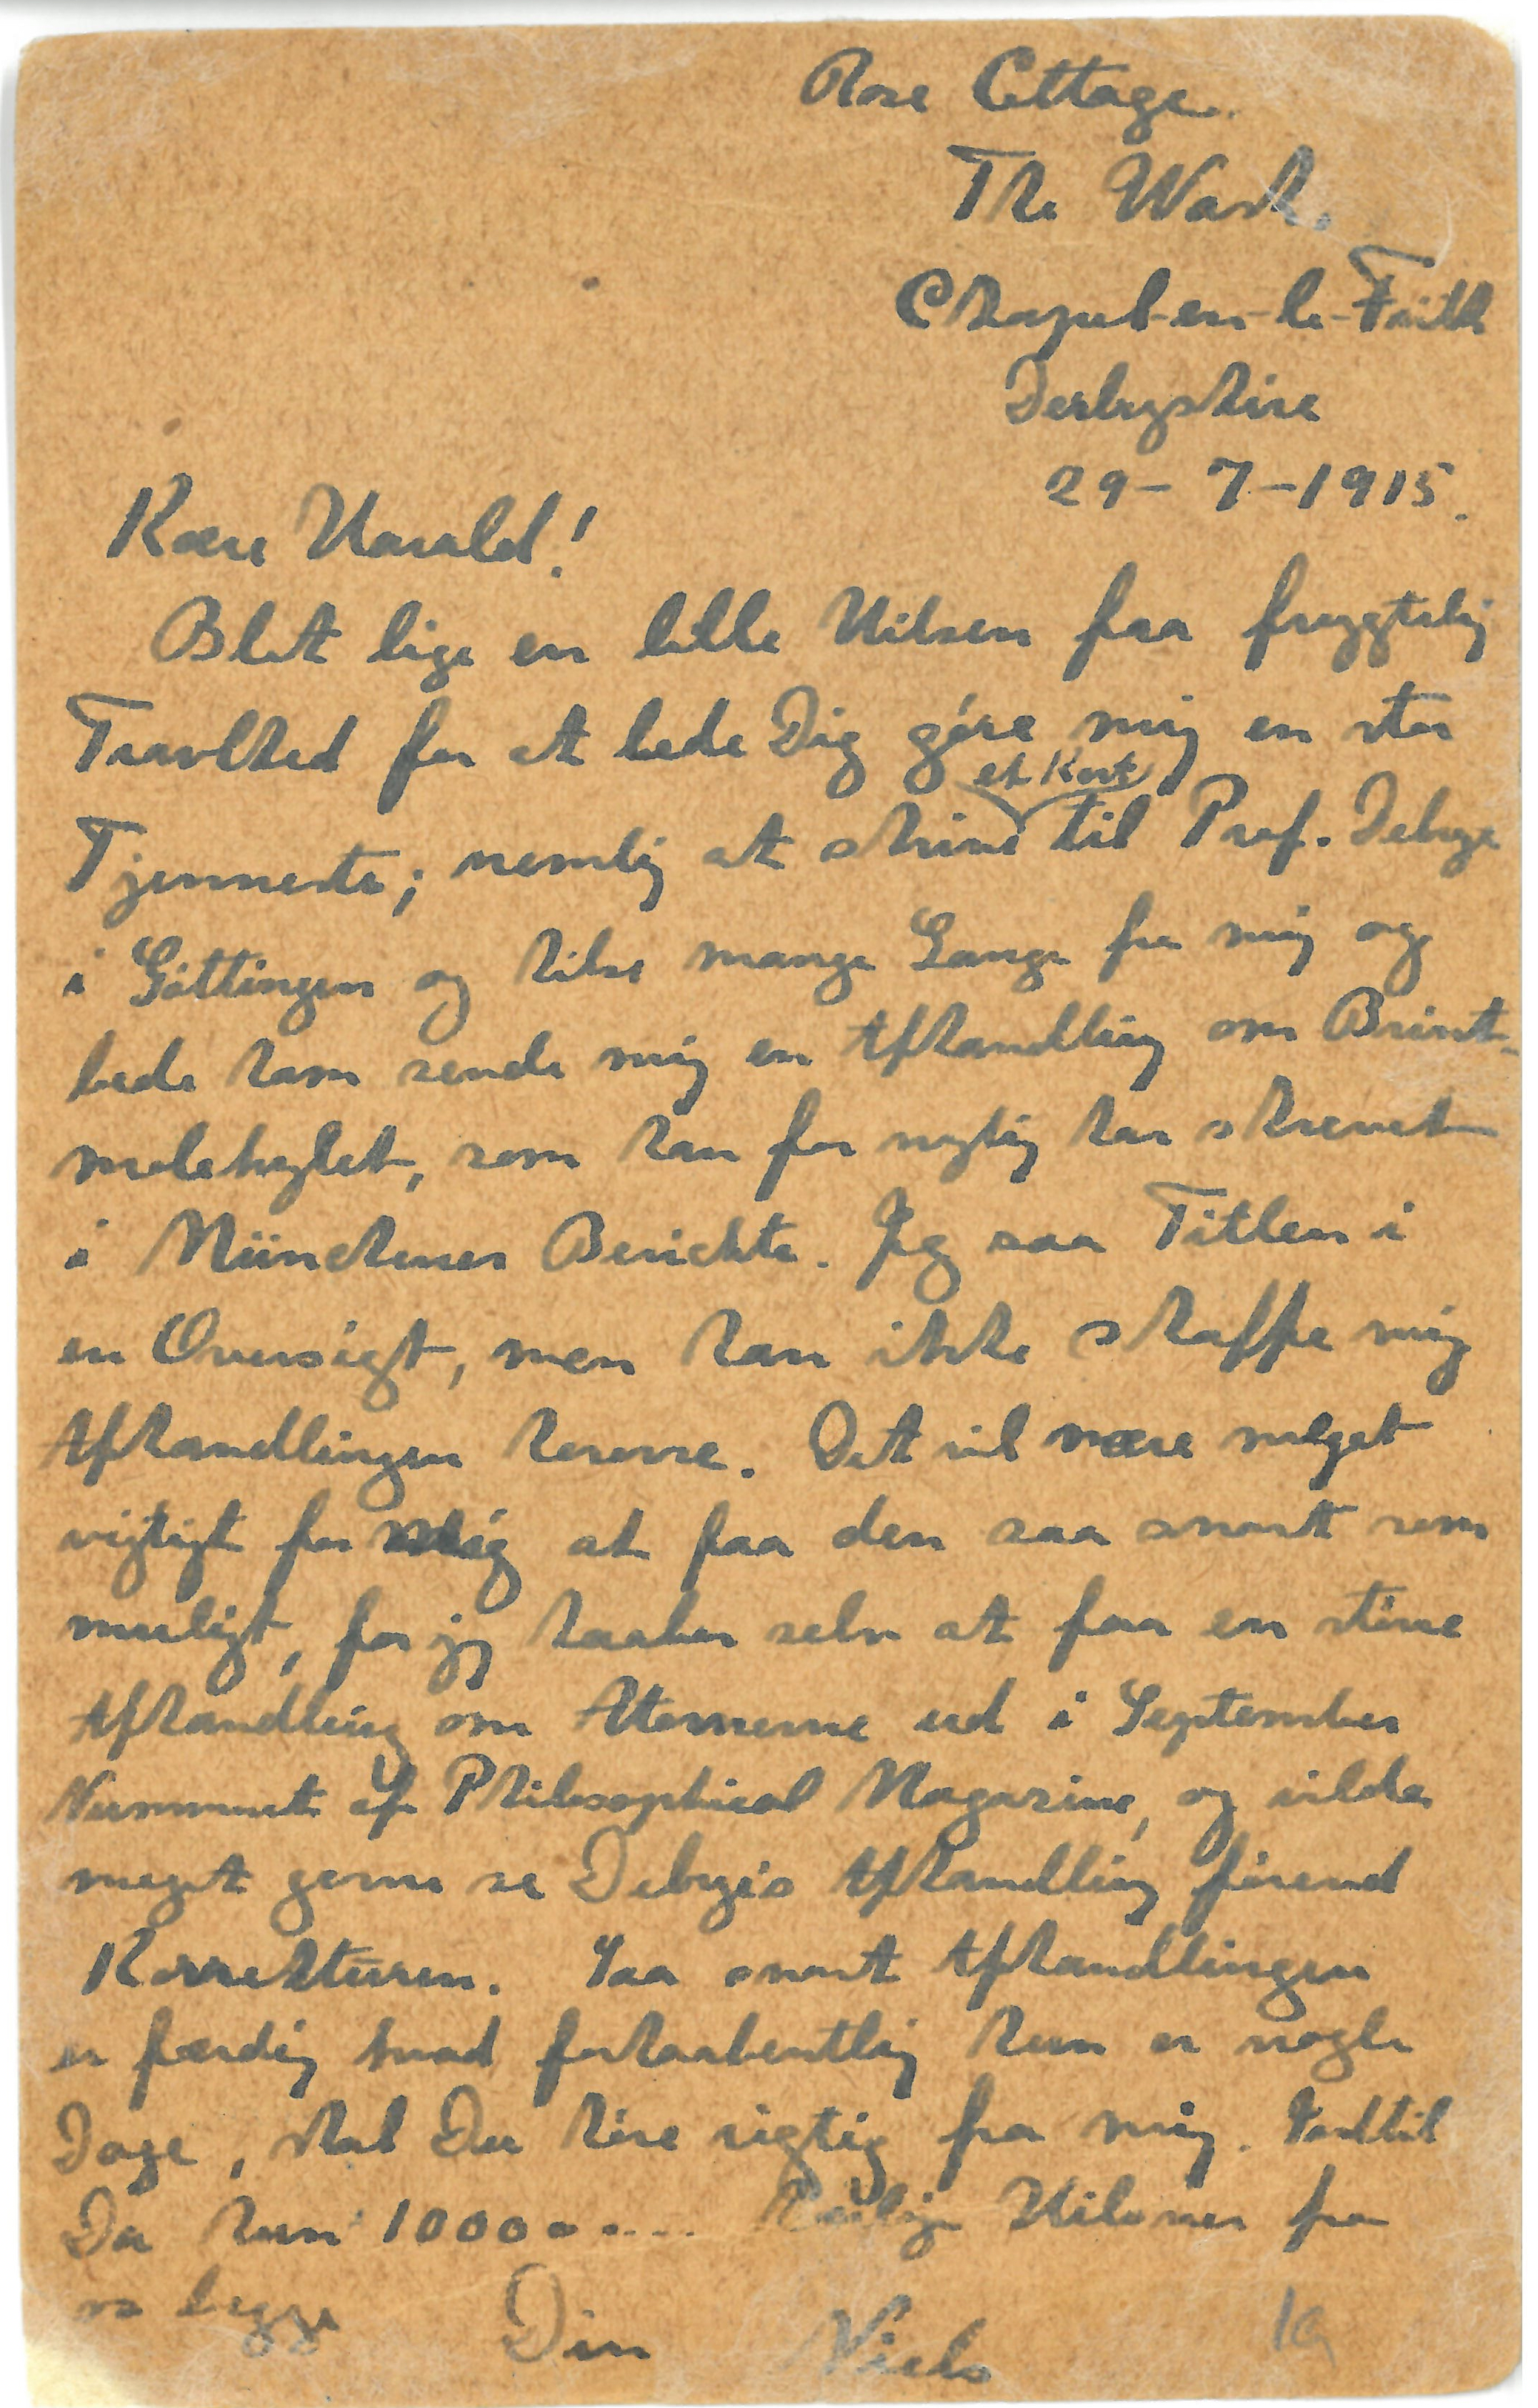 Rose Cottage.
The Wash.
Chapel-en-le-Frith
Derbyshire
29-7-1915.
Kære Harald!
Blot lige en lille Hilsen paa frygtelig
Travlhed for at bede Dig göre mig en stor
et Kort
Tjenneste; nemlig at skrive til Prof. Debye
i Göttingen og hilse mange Gange fra mig og
bede ham sende mig en Afhandling om Brint-
molekylet, som han for nylig har skrevet
i Münchener Berichte. Jeg saa Titlen i
en Oversigt, men kan ikke skaffe mig
Afhandlingen herovre. Det vil være meget
vigtigt for mig at faa den saa snart som
muligt, for jeg haaber selv at faa en större
Afhandling om Atomerne ud i September
Nummeret af Philosophical Magazine, og vilde
meget gerne se Debye's Afhandling förend
Korrekturen. Saa snart Afhandlingen
er færdig hvad forhaabentlig kun er nogle
Dage, skal Du höre rigtig fra mig. Indtil
Da kun 10000.... kærlige Hilsner fra
os begge Din Niels